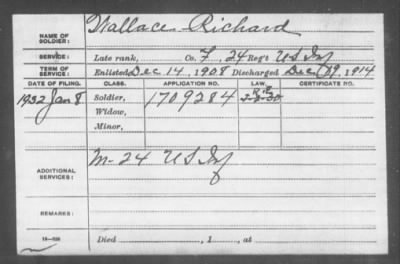 NAME OF SOLDIER: Wallace Richard
SERVICE: Late rank, Co. F, 24 Reg't US Inf
TERM OF SERVICE: Enlisted Dec 14, 1908 Discharged Dec 19, 1914
DATE OF FILING. CLASS. APPLICATION NO. LAW. CERTIFICATE NO.
1932 Jan 8 Soldier, 1709284
Widow,
Minor,
ADDITIONAL SERVICES: M-24 US Inf
REMARKS:
Died , 1 , at